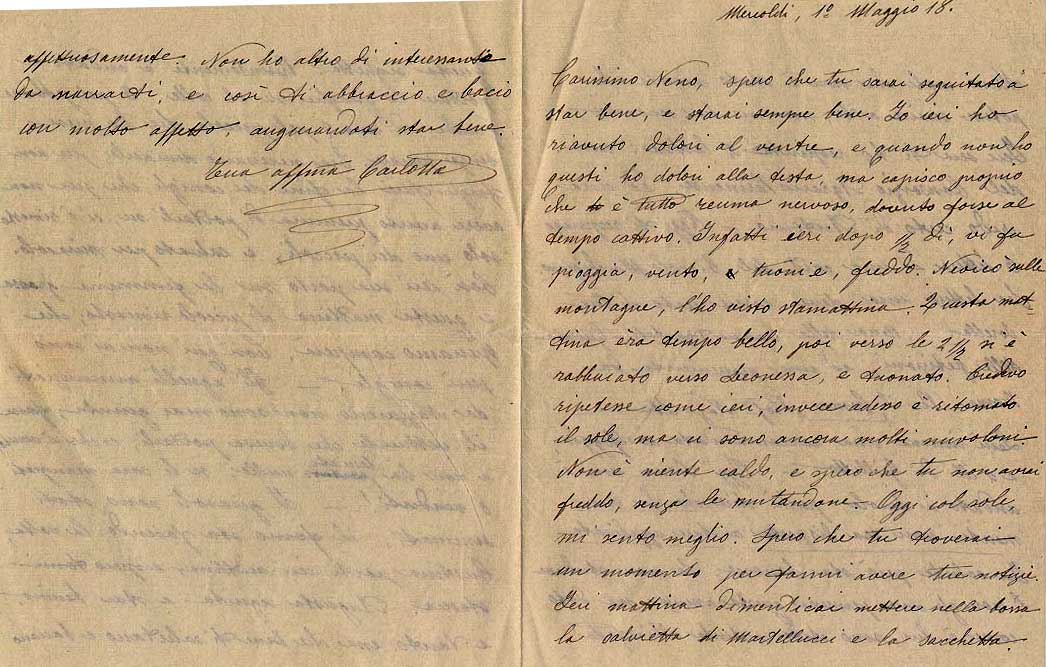 Mercoldì, 1º Maggio 18.
Carissimo Neno, spero che tu sarai seguitato a
star bene, e starai sempre bene. Io ieri ho
riavuto dolori al ventre, e quando non ho
questi ho dolori alla testa, ma capisco proprio
che è tutto reuma nervoso, dovuto forse al
tempo cattivo. Infatti ieri dopo 1/2 dì, vi fu
pioggia, vento, tuoni e, freddo. Nevicò sulle
montagne, l'ho visto stamattina. Questa mat-
tina èra tempo bello, poi verso le 2 1/2 si è
rabbuiato verso Leonessa, e tuonato. Credevo
ripetesse come ieri, invece adesso è ritornato
il sole, ma ci sono ancora molti nuvoloni
Non è niente caldo, e spero che tu non avrai
freddo, senza le mutandone. Oggi col sole,
mi sento meglio. Spero che tu troverai
un momento per farmi avere tue notizie.
Ieri mattina dimenticai mettere nella borsa
la salvietta di Martellucci e la sacchetta.
affettuosamente. Non ho altro di interessante
da narrarti, e così ti abbraccio e bacio
con molto affetto, augurandoti star bene.
Tua affma Carlotta